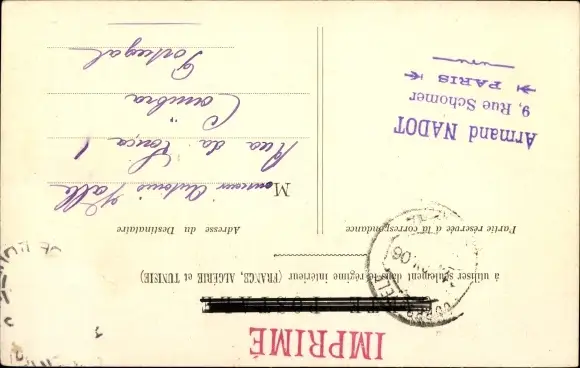 IMPRIMÉ
à utiliser seulement dans le régime intérieur (FRANCE, ALGÉRIE et TUNISIE)
Partie réservée à la correspondance
Adresse du Destinataire
M onsieur Antonio Valle
Rua da Louça 1
Coïmbra
Portugal
Armand NADOT
9, Rue Schomer
PARIS
06